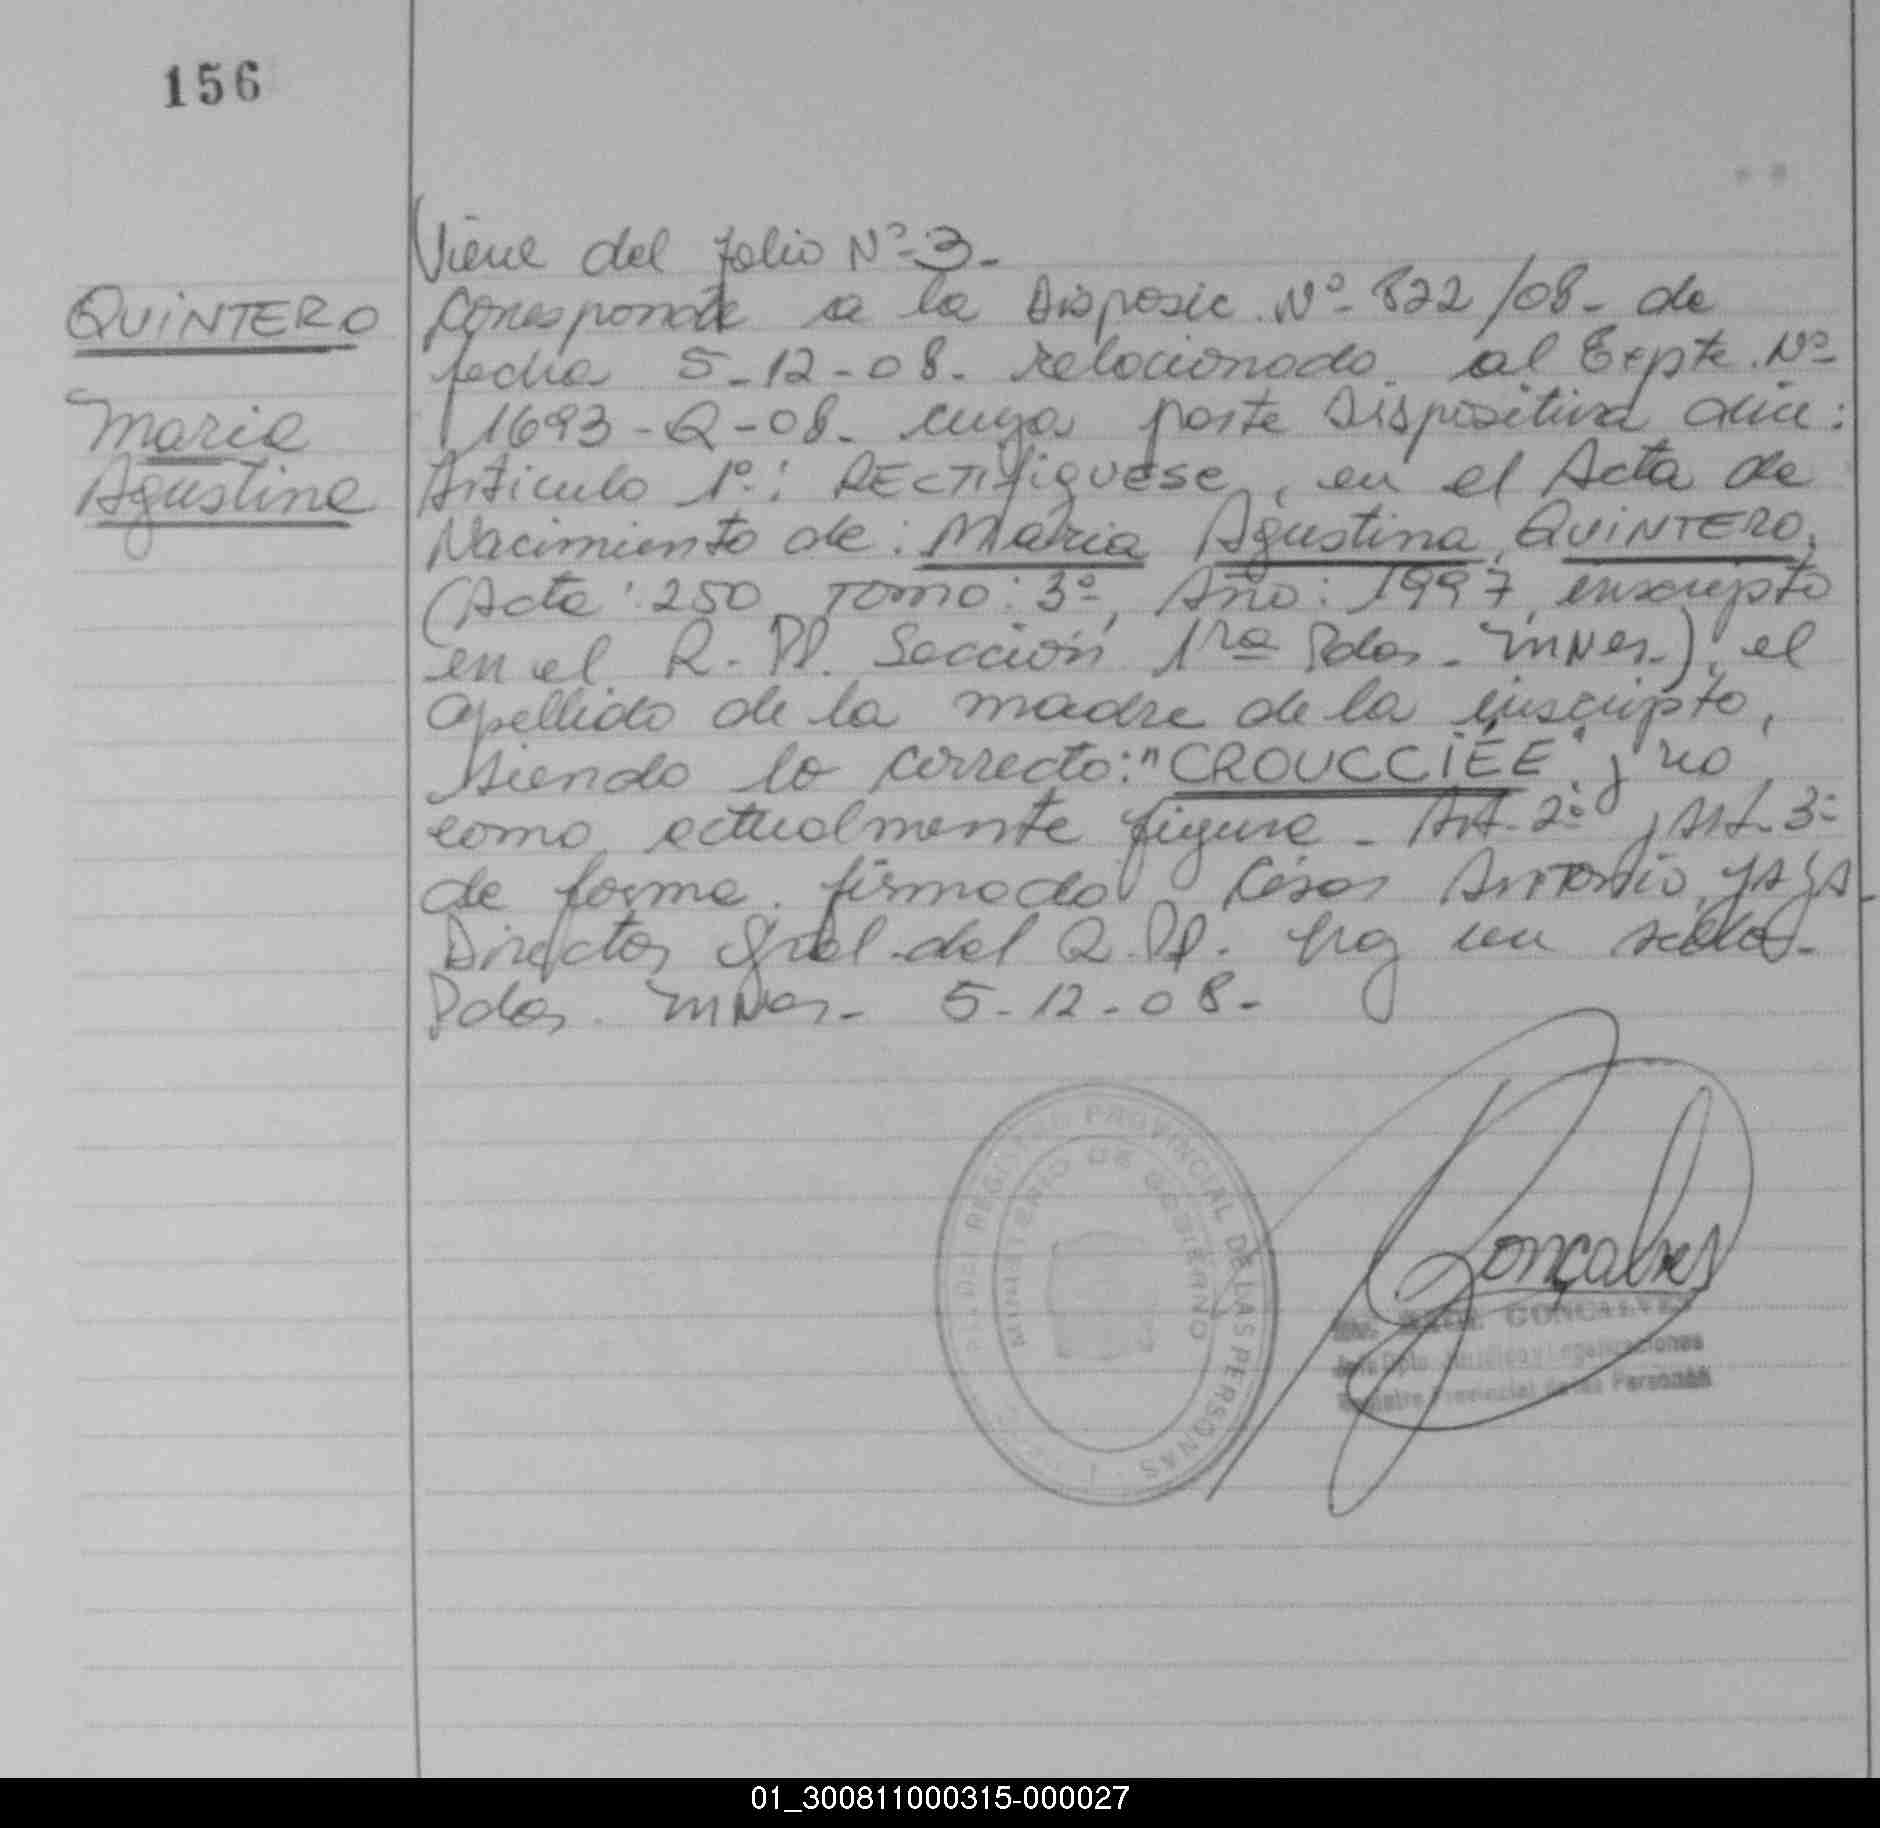 156
Viene del folio Nº-3-
QUINTERO
Corresponde a la Disposic. Nº- 822/08- de
fecha 5-12-08- relacionado al Expte. Nº
Maria
1693-Q-08- cuya parte Dispositiva dice:
Agustina
Articulo 1º: RECTifiQUESE, en el Acta de
Nacimiento de: Maria Agustina QUiNTERO,
(Acta: 250, Tomo: 3º, Año: 1997, inscripto
en el R.P.P. Sección 1ra Pdas. Mnes.), el
apellido de la madre de la inscripto,
siendo lo correcto: "CROUCCIÉE" y no
como actualmente figura - Art. 2º y Art. 3º
de forma. firmado César Antonio YAYA
Director Gral. del R.P.P. hay un sello-
Pdas. Mnes- 5-12-08-
REGISTRO PROVINCIAL DE LAS PERSONAS
MINISTERIO DE GOBIERNO
Goncalves
GONCALVES
Jefe Dpto. Jurídico y Legalizaciones
Registro Provincial de las Personas
01_300811000315-000027